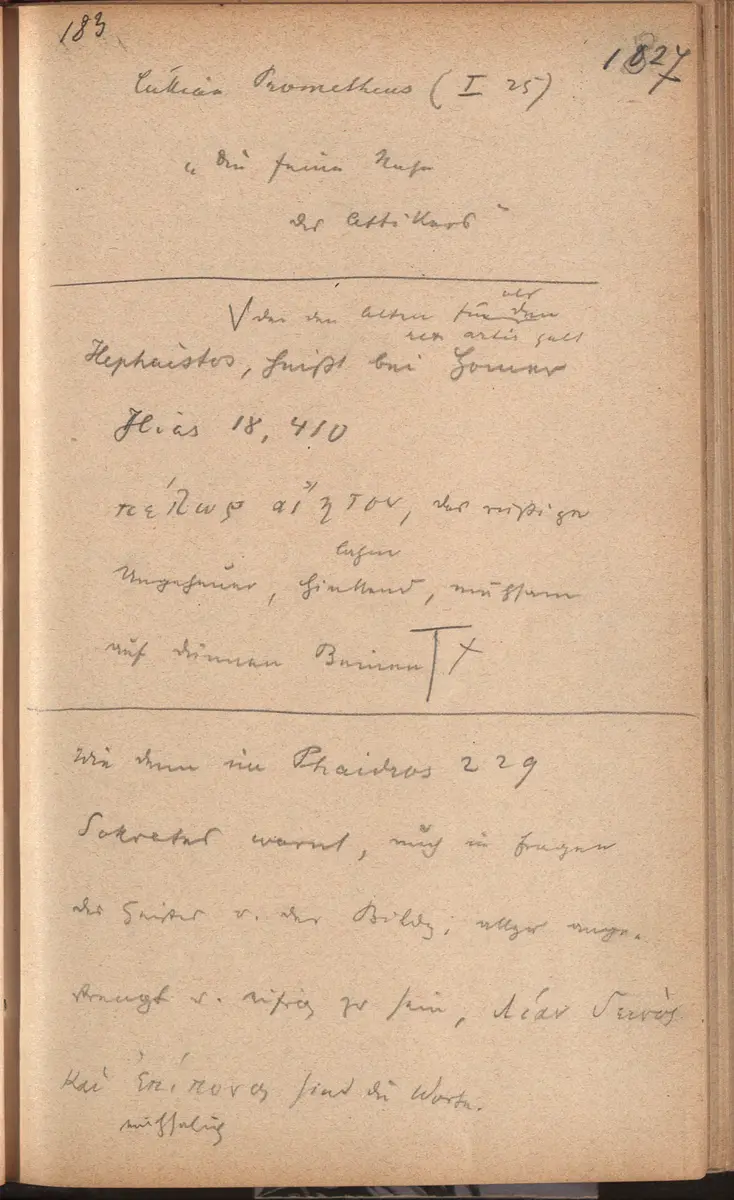 183
1827
Lukian Prometheus (I 25)
„Die feine Nase
des Attikers"
als
der den Alten für den
rex artis galt
Hephaistos, heißt bei Homer
Ilias 18, 410
πέλωρ αἴητον, das rußige
lahm
Ungeheuer, hinkend, mühsam
auf dünnen Beinen
Wie denn im Phaidros 229
Sokrates warnt, auch in Fragen
des Geistes u. der Bildg. allzu ange-
strengt u. eifrig zu sein, λίαν δεινὸς
καὶ ἐπίπονος sind die Worte.
mühselig